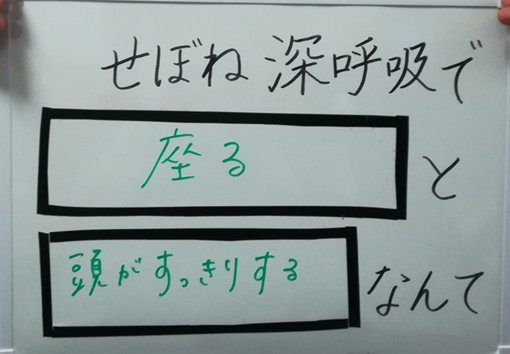 せぼね 深呼吸で
座る と
頭がすっきりする なんて